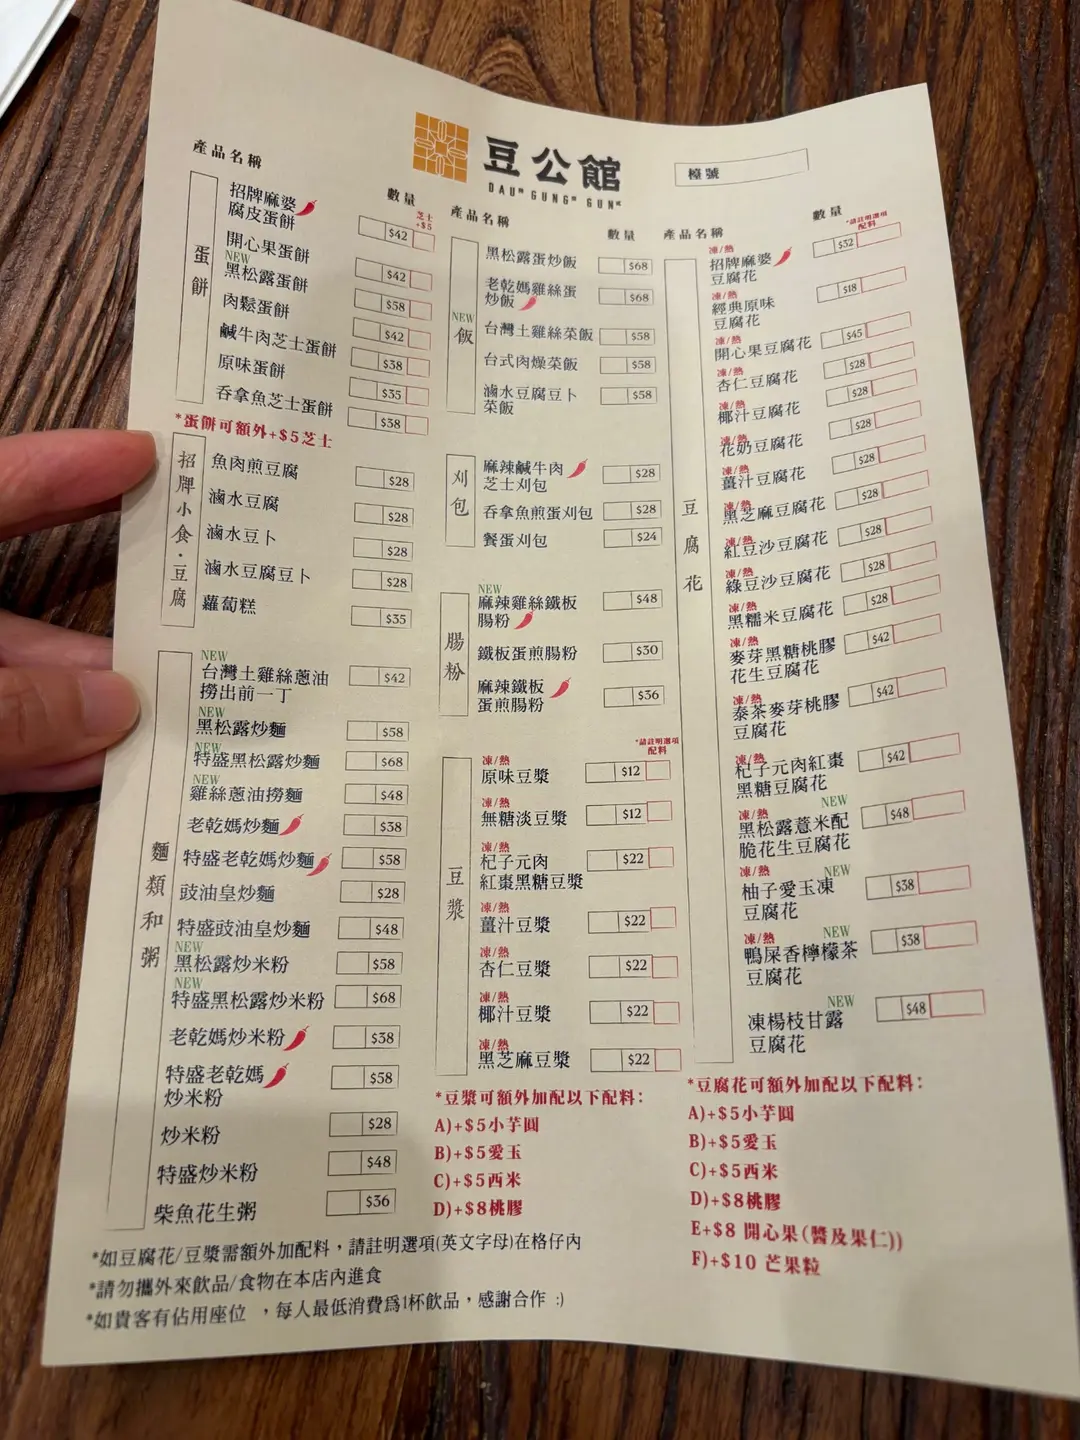 豆公館
DAU⁶ GUNG¹ GUN²
檯號
產品名稱
數量
芝士
+$5
蛋餅
招牌麻婆
腐皮蛋餅
$42
開心果蛋餅
$42
NEW
黑松露蛋餅
$58
肉鬆蛋餅
$42
鹹牛肉芝士蛋餅
$38
原味蛋餅
$35
吞拿魚芝士蛋餅
$38
*蛋餅可額外+$5芝士
招牌小食·豆腐
魚肉煎豆腐
$28
滷水豆腐
$28
滷水豆卜
$28
滷水豆腐豆卜
$28
蘿蔔糕
$35
麵類和粥
NEW
台灣土雞絲蔥油
撈出前一丁
$42
NEW
黑松露炒麵
$58
NEW
特盛黑松露炒麵
$68
NEW
雞絲蔥油撈麵
$48
老乾媽炒麵
$38
特盛老乾媽炒麵
$58
豉油皇炒麵
$28
特盛豉油皇炒麵
$48
NEW
黑松露炒米粉
$58
NEW
特盛黑松露炒米粉
$68
老乾媽炒米粉
$38
特盛老乾媽
炒米粉
$58
炒米粉
$28
特盛炒米粉
$48
柴魚花生粥
$36
產品名稱
數量
NEW
飯
黑松露蛋炒飯
$68
老乾媽雞絲蛋
炒飯
$68
台灣土雞絲菜飯
$58
台式肉燥菜飯
$58
滷水豆腐豆卜
菜飯
$58
刈包
麻辣鹹牛肉
芝士刈包
$28
吞拿魚煎蛋刈包
$28
餐蛋刈包
$24
腸粉
NEW
麻辣雞絲鐵板
腸粉
$48
鐵板蛋煎腸粉
$30
麻辣鐵板
蛋煎腸粉
$36
*請註明選項
配料
豆漿
凍/熱
原味豆漿
$12
凍/熱
無糖淡豆漿
$12
凍/熱
杞子元肉
紅棗黑糖豆漿
$22
凍/熱
薑汁豆漿
$22
凍/熱
杏仁豆漿
$22
凍/熱
椰汁豆漿
$22
凍/熱
黑芝麻豆漿
$22
*豆漿可額外加配以下配料：
A)+$5小芋圓
B)+$5愛玉
C)+$5西米
D)+$8桃膠
產品名稱
數量
*請註明選項
配料
豆腐花
凍/熱
招牌麻婆
豆腐花
$32
凍/熱
經典原味
豆腐花
$18
凍/熱
開心果豆腐花
$45
凍/熱
杏仁豆腐花
$28
凍/熱
椰汁豆腐花
$28
凍/熱
花奶豆腐花
$28
凍/熱
薑汁豆腐花
$28
凍/熱
黑芝麻豆腐花
$28
凍/熱
紅豆沙豆腐花
$28
凍/熱
綠豆沙豆腐花
$28
凍/熱
黑糯米豆腐花
$28
凍/熱
麥芽黑糖桃膠
花生豆腐花
$42
凍/熱
泰茶麥芽桃膠
豆腐花
$42
凍/熱
杞子元肉紅棗
黑糖豆腐花
$42
凍/熱
NEW
黑松露薏米配
脆花生豆腐花
$48
凍/熱
NEW
柚子愛玉凍
豆腐花
$38
凍/熱
NEW
鴨屎香檸檬茶
豆腐花
$38
NEW
凍楊枝甘露
豆腐花
$48
*豆腐花可額外加配以下配料：
A)+$5小芋圓
B)+$5愛玉
C)+$5西米
D)+$8桃膠
E+$8 開心果(醬及果仁))
F)+$10 芒果粒
*如豆腐花/豆漿需額外加配料，請註明選項(英文字母)在格仔內
*請勿攜外來飲品/食物在本店內進食
*如貴客有佔用座位 ，每人最低消費爲1杯飲品，感謝合作 :)